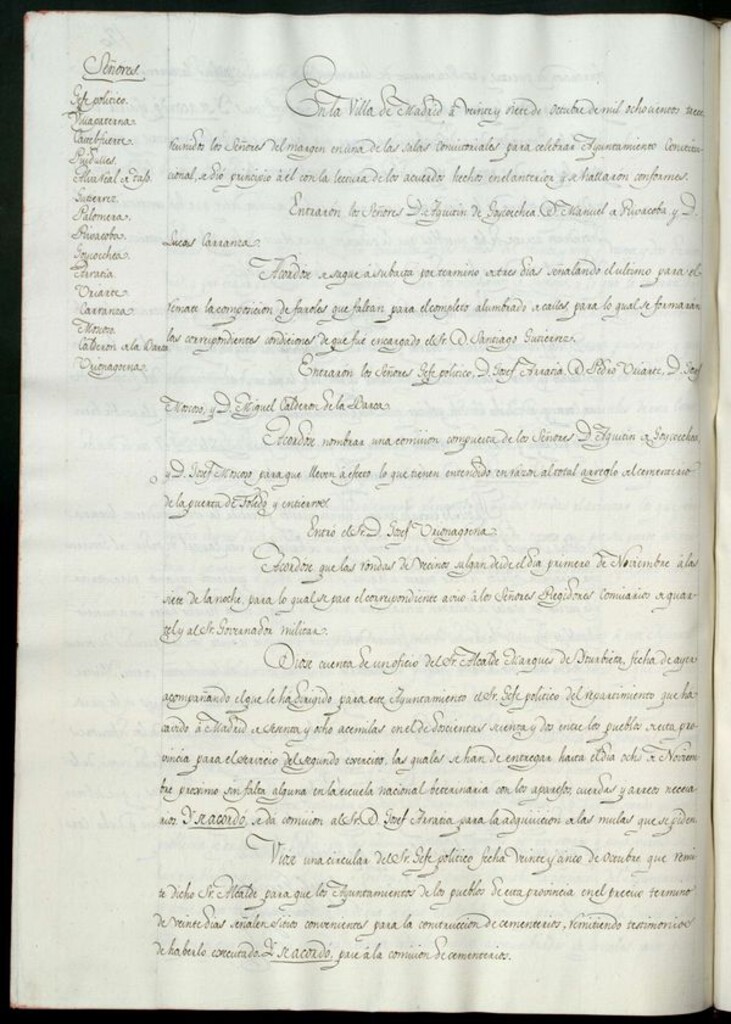 Señores.
Gefe politico.
Villapaterna.
Castelfuerte.
Puidulles.
Gutierrez.
Palomera.
Rivacoba.
Goycoechea.
Arratia.
Uriarte.
Carranza.
Moscoso.
Calderon de la Barca.
Urionagoena.
En la Villa de Madrid á veinte y siete de octubre de mil ochocientos trece
reunidos los Señores del margen en una de las salas consistoriales para celebrar Ayuntamiento Constitu-
cional, se dio principio á él con la lectura de los acuerdos hechos en el anterior y se hallaron conformes.
Entraron los Señores D. Agustin de Goycoechea D. Manuel de Rivacoba, y D.
Lucas Carranza.
Acordose se saque á subasta por termino de tres dias señalando el ultimo para el
remate la composicion de faroles que faltan para el completo alumbrado de calles, para lo qual se formarán
las correspondientes condiciones de que fué encargado el Sr. D. Santiago Gutierrez.
Entraron los Señores Gefe politico, D. Josef Arratia, D. Pedro Uriarte, D. Josef
Moscoso, y D. Miguel Calderon de la Barca
Acordose nombrar una comision compuesta de los Señores D. Agustin de Goycoechea,
y D. Josef Moscoso para que lleven á efecto lo que tienen entendido en razon al total arreglo del cementerio
de la puerta de Toledo y entierros.
Entró el Sr. D. Josef Urionagoena.
Acordose que las rondas de vecinos salgan desde el dia primero de Noviembre á las
siete de la noche, para lo qual se pase el correspondiente aviso á los Señores Regidores Comisarios de quar-
tel y al Sr. Governador militar.
Diose cuenta de un oficio del Sr. Alcalde Marques de Yturbieta, fecha de ayer
acompañando el que le ha dirigido para este Ayuntamiento el Sr. Gefe politico del repartimiento que ha
cavido á Madrid de sesenta y ocho acemilas en el de doscientas sesenta y dos entre los pueblos de esta pro-
vincia para el servicio del segundo exercito, las quales se han de entregar hasta el dia ocho de Noviem-
bre proximo sin falta alguna en la escuela nacional beterinaria con los aparejos, cuerdas y arreos necesa-
rios. Y se acordó, se dá comision al Sr. D. Josef Arratia para la adquisicion de las mulas que se piden.
Viose una circular del Sr. Gefe politico fecha veinte y cinco de octubre que remi-
te dicho Sr. Alcalde para que los Ayuntamientos de los pueblos de esta provincia en el preciso termino
de veinte dias señalen sitios convenientes para la construccion de cementerios, remitiendo testimonios
de haberlo executado. Y se acordó, pase á la comision de cementerios.